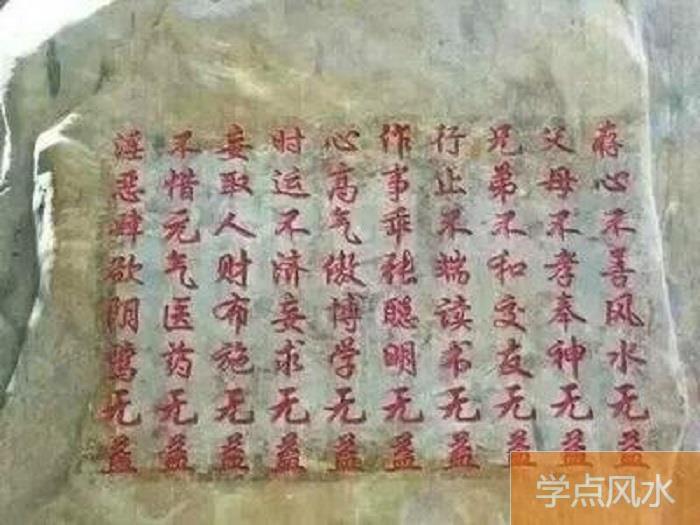 存心不善风水无益
父母不孝奉神无益
兄弟不和交友无益
行止不端读书无益
作事乖张聪明无益
心高气傲博学无益
时运不济妄求无益
妄取人财布施无益
不惜元气医药无益
淫恶肆欲阴骘无益
学点风水